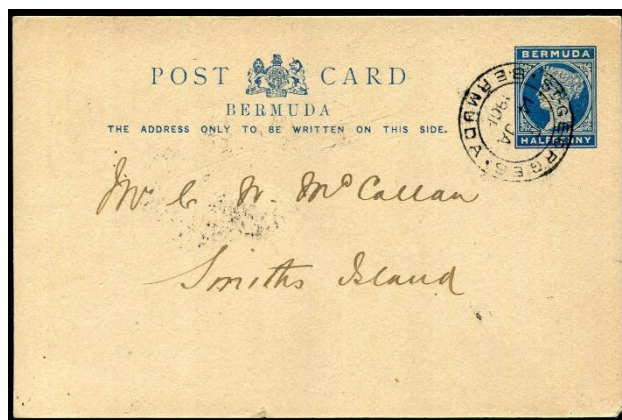 POST CARD
BERMUDA
THE ADDRESS ONLY TO BE WRITTEN ON THIS SIDE.
BERMUDA
HALFPENNY
ST. GEORGES. BERMUDA
JA
Mr. C. W. McCallan
Smiths Island